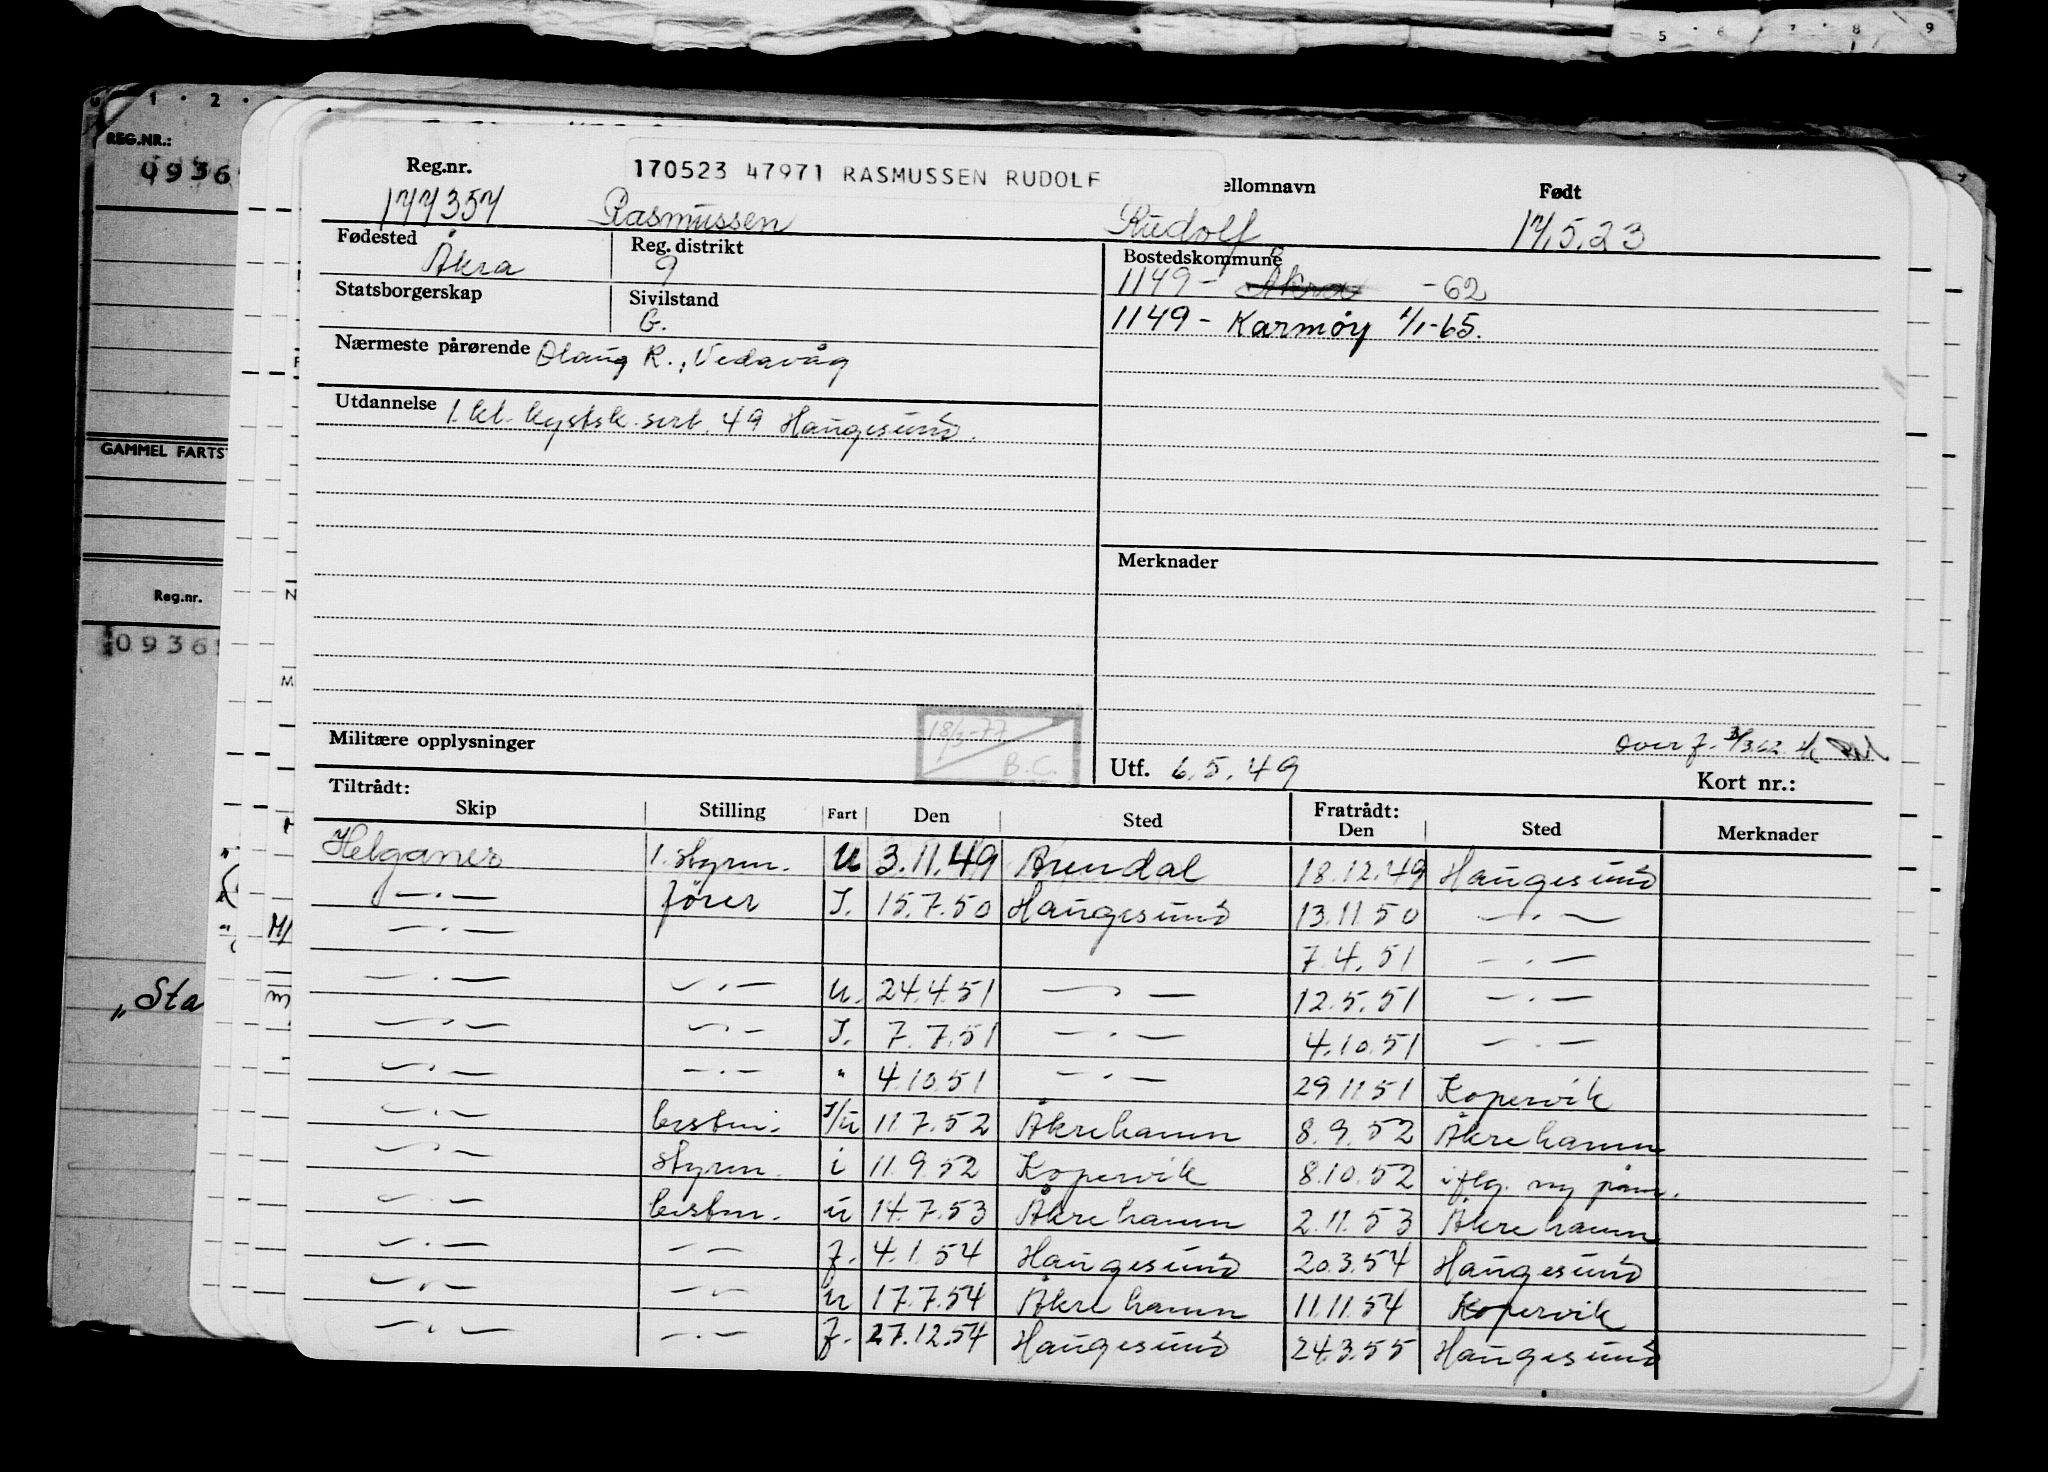 5 · 6 · 7 · 8 · 9
1 · 2 ·
REG.NR.:
0936
GAMMEL FARTS
Reg.nr.
0936
„Sta
170523 47971 RASMUSSEN RUDOLF
Reg.nr. ellomnavn Født
177357 Rasmussen Rudolf 17.5.23
Fødested Åkra Reg. distrikt 9 Bostedskommune
1149 - Åkra - 62
Statsborgerskap Sivilstand G.
1149 - Karmøy 1/1-65.
Nærmeste pårørende Olaug R., Vedavåg
Utdannelse 1. kl. kystsk. sert. 49 Haugesund.
Merknader
18/3-77
B.C.
Militære opplysninger
Over f.
Utf. 6.5.49 Kort nr.:
Tiltrådt: Fratrådt:
Skip Stilling Fart Den Sted Den Sted Merknader
Helganes 1. styrm. U 3.11.49 Arendal 18.12.49 Haugesund
—·— fører I. 15.7.50 Haugesund 13.11.50 —·—
—·— 7.4.51 —·—
—·— —·— U. 24.4.51 —·— 12.5.51 —·—
—·— —·— I. 7.7.51 —·— 4.10.51 —·—
—·— —·— " 4.10.51 —·— 29.11.51 Kopervik
—·— bestm. I/U 11.7.52 Åkrehamn 8.9.52 Åkrehamn
—·— styrm. i 11.9.52 Kopervik 8.10.52 iflg. ny påm.
—·— bestm. u 14.7.53 Åkrehamn 2.11.53 Åkrehamn
—·— — — f. 4.1.54 Haugesund 20.3.54 Haugesund
—·— —·— u 17.7.54 Åkrehamn 11.11.54 Kopervik
—·— —·— f. 27.12.54 Haugesund 24.3.55 Haugesund